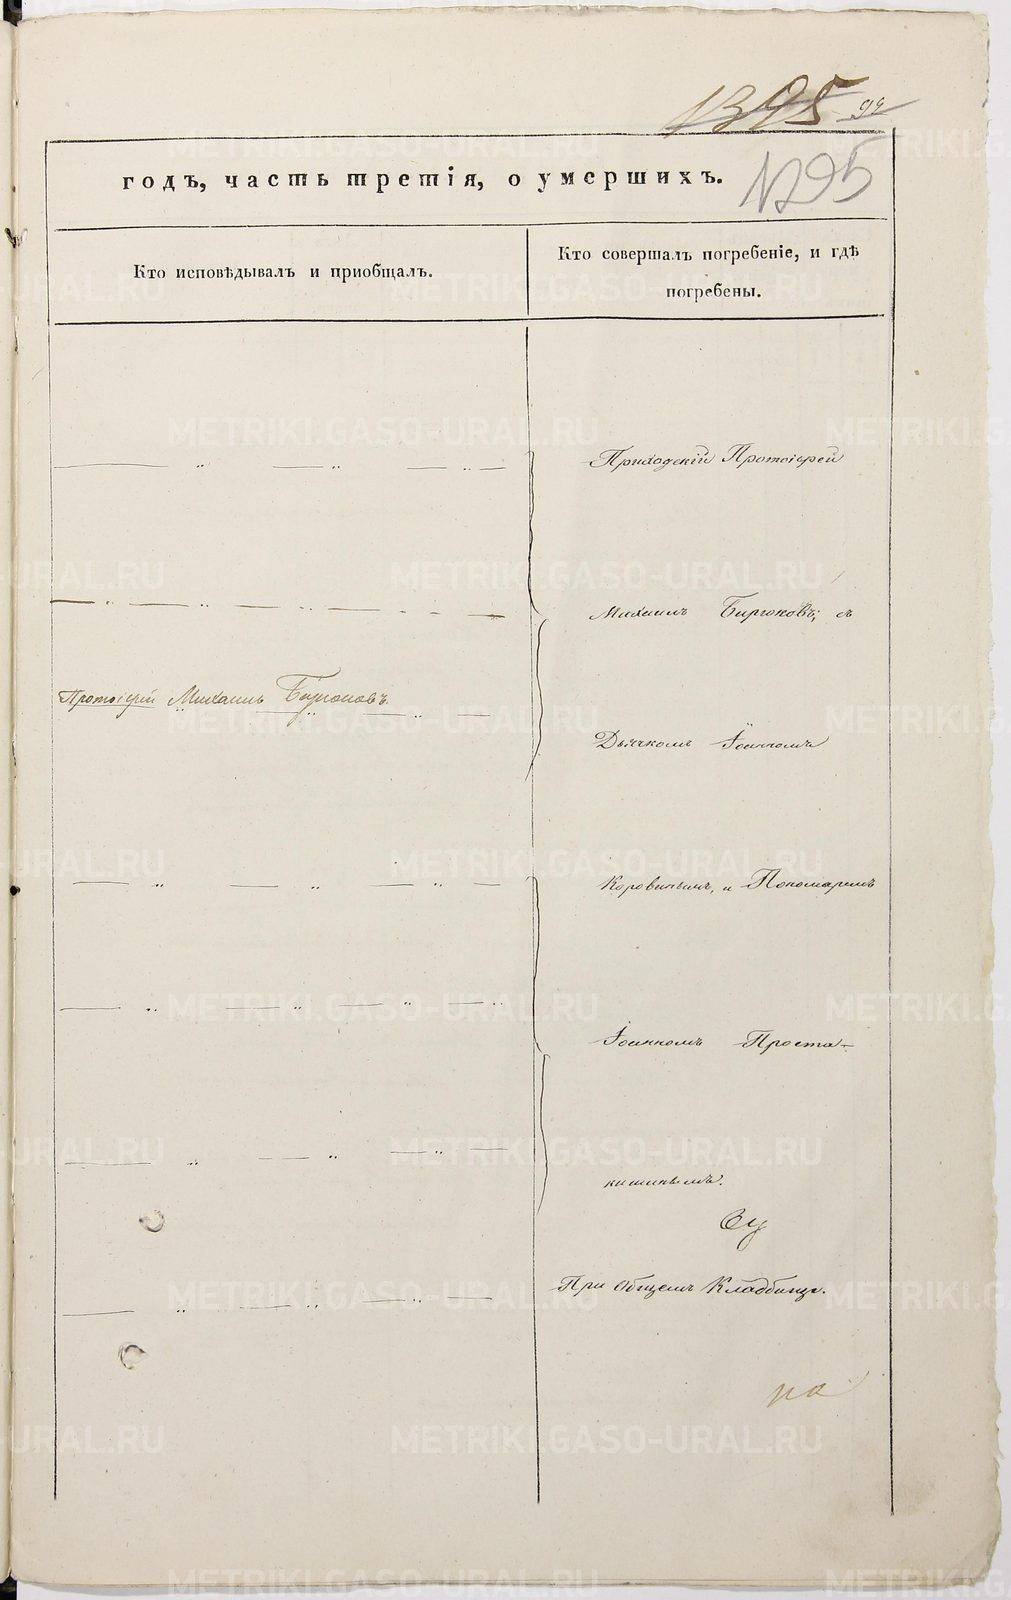 1395 94
1295
годъ, часть третія, о умершихъ.
Кто исповѣдывалъ и приобщалъ.
Кто совершалъ погребеніе, и гдѣ
погребены.
Приходскій Протоіерей
Михаилъ съ
Протоіерей Михаилъ
Дьячкомъ Іоанномъ
Коровинымъ, и Пономаремъ
Іоанномъ Проста-
кишинымъ.
При общемъ Кладбищѣ.
METRIKI.GASO-URAL.RU